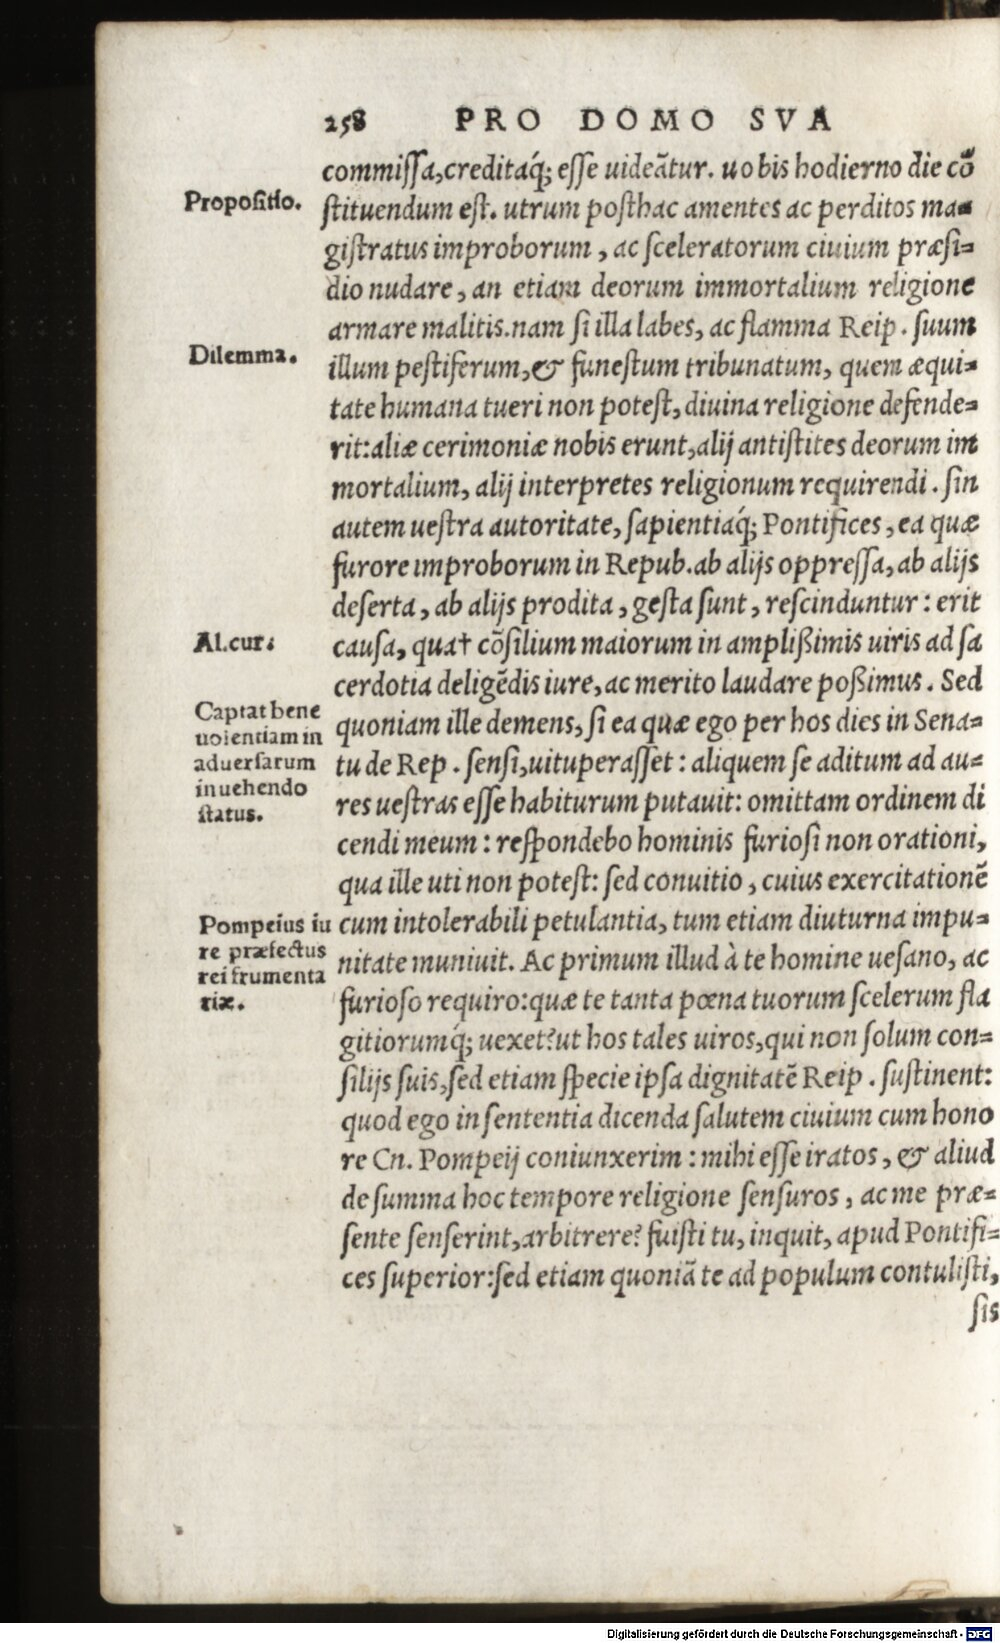 258 PRO DOMO SVA
commiſſa,creditaq́; eſſe uideãtur. uobis hodierno die cõ
Propoſitio.
ſtituendum eſt. utrum poſthac amentes ac perditos ma=
giſtratus improborum, ac ſceleratorum ciuium præſi=
dio nudare, an etiam deorum immortalium religione
armare malitis.nam ſi illa labes, ac flamma Reip. ſuum
Dilemma.
illum peſtiferum,& funeſtum tribunatum, quem æqui=
tate humana tueri non poteſt, diuina religione defende=
rit:aliæ cerimoniæ nobis erunt,alij antiſtites deorum im
mortalium, alij interpretes religionum requirendi. ſin
autem ueſtra autoritate, ſapientiaq́; Pontifices, ea quæ
furore improborum in Repub.ab alijs oppreſſa, ab alijs
deſerta, ab alijs prodita, geſta ſunt, reſcinduntur: erit
Al.cur:
cauſa, qua† cõſilium maiorum in amplißimis uiris ad ſa
cerdotia deligẽdis iure, ac merito laudare poßimus. Sed
Captat bene
uolentiam in
aduerſarum
inuehendo
ſtatus.
quoniam ille demens, ſi ea quæ ego per hos dies in Sena=
tu de Rep. ſenſi,uituperaſſet: aliquem ſe aditum ad au=
res ueſtras eſſe habiturum putauit: omittam ordinem di
cendi meum: reſpondebo hominis furioſi non orationi,
qua ille uti non poteſt: ſed conuitio, cuius exercitationẽ
Pompeius iu
re præfectus
rei frumenta
riæ.
cum intolerabili petulantia, tum etiam diuturna impu=
nitate muniuit. Ac primum illud à te homine ueſano, ac
furioſo requiro:quæ te tanta pœna tuorum ſcelerum fla
gitiorumq́; uexet?ut hos tales uiros,qui non ſolum con=
ſilijs ſuis,ſed etiam ſpecie ipſa dignitatẽ Reip. ſuſtinent:
quod ego in ſententia dicenda ſalutem ciuium cum hono
re Cn. Pompeij coniunxerim: mihi eſſe iratos, & aliud
de ſumma hoc tempore religione ſenſuros, ac me præ=
ſente ſenſerint,arbitrere? fuiſti tu, inquit, apud Pontifi=
ces ſuperior:ſed etiam quoniã te ad populum contuliſti,
ſis
Digitalisierung gefördert durch die Deutsche Forschungsgemeinschaft - DFG